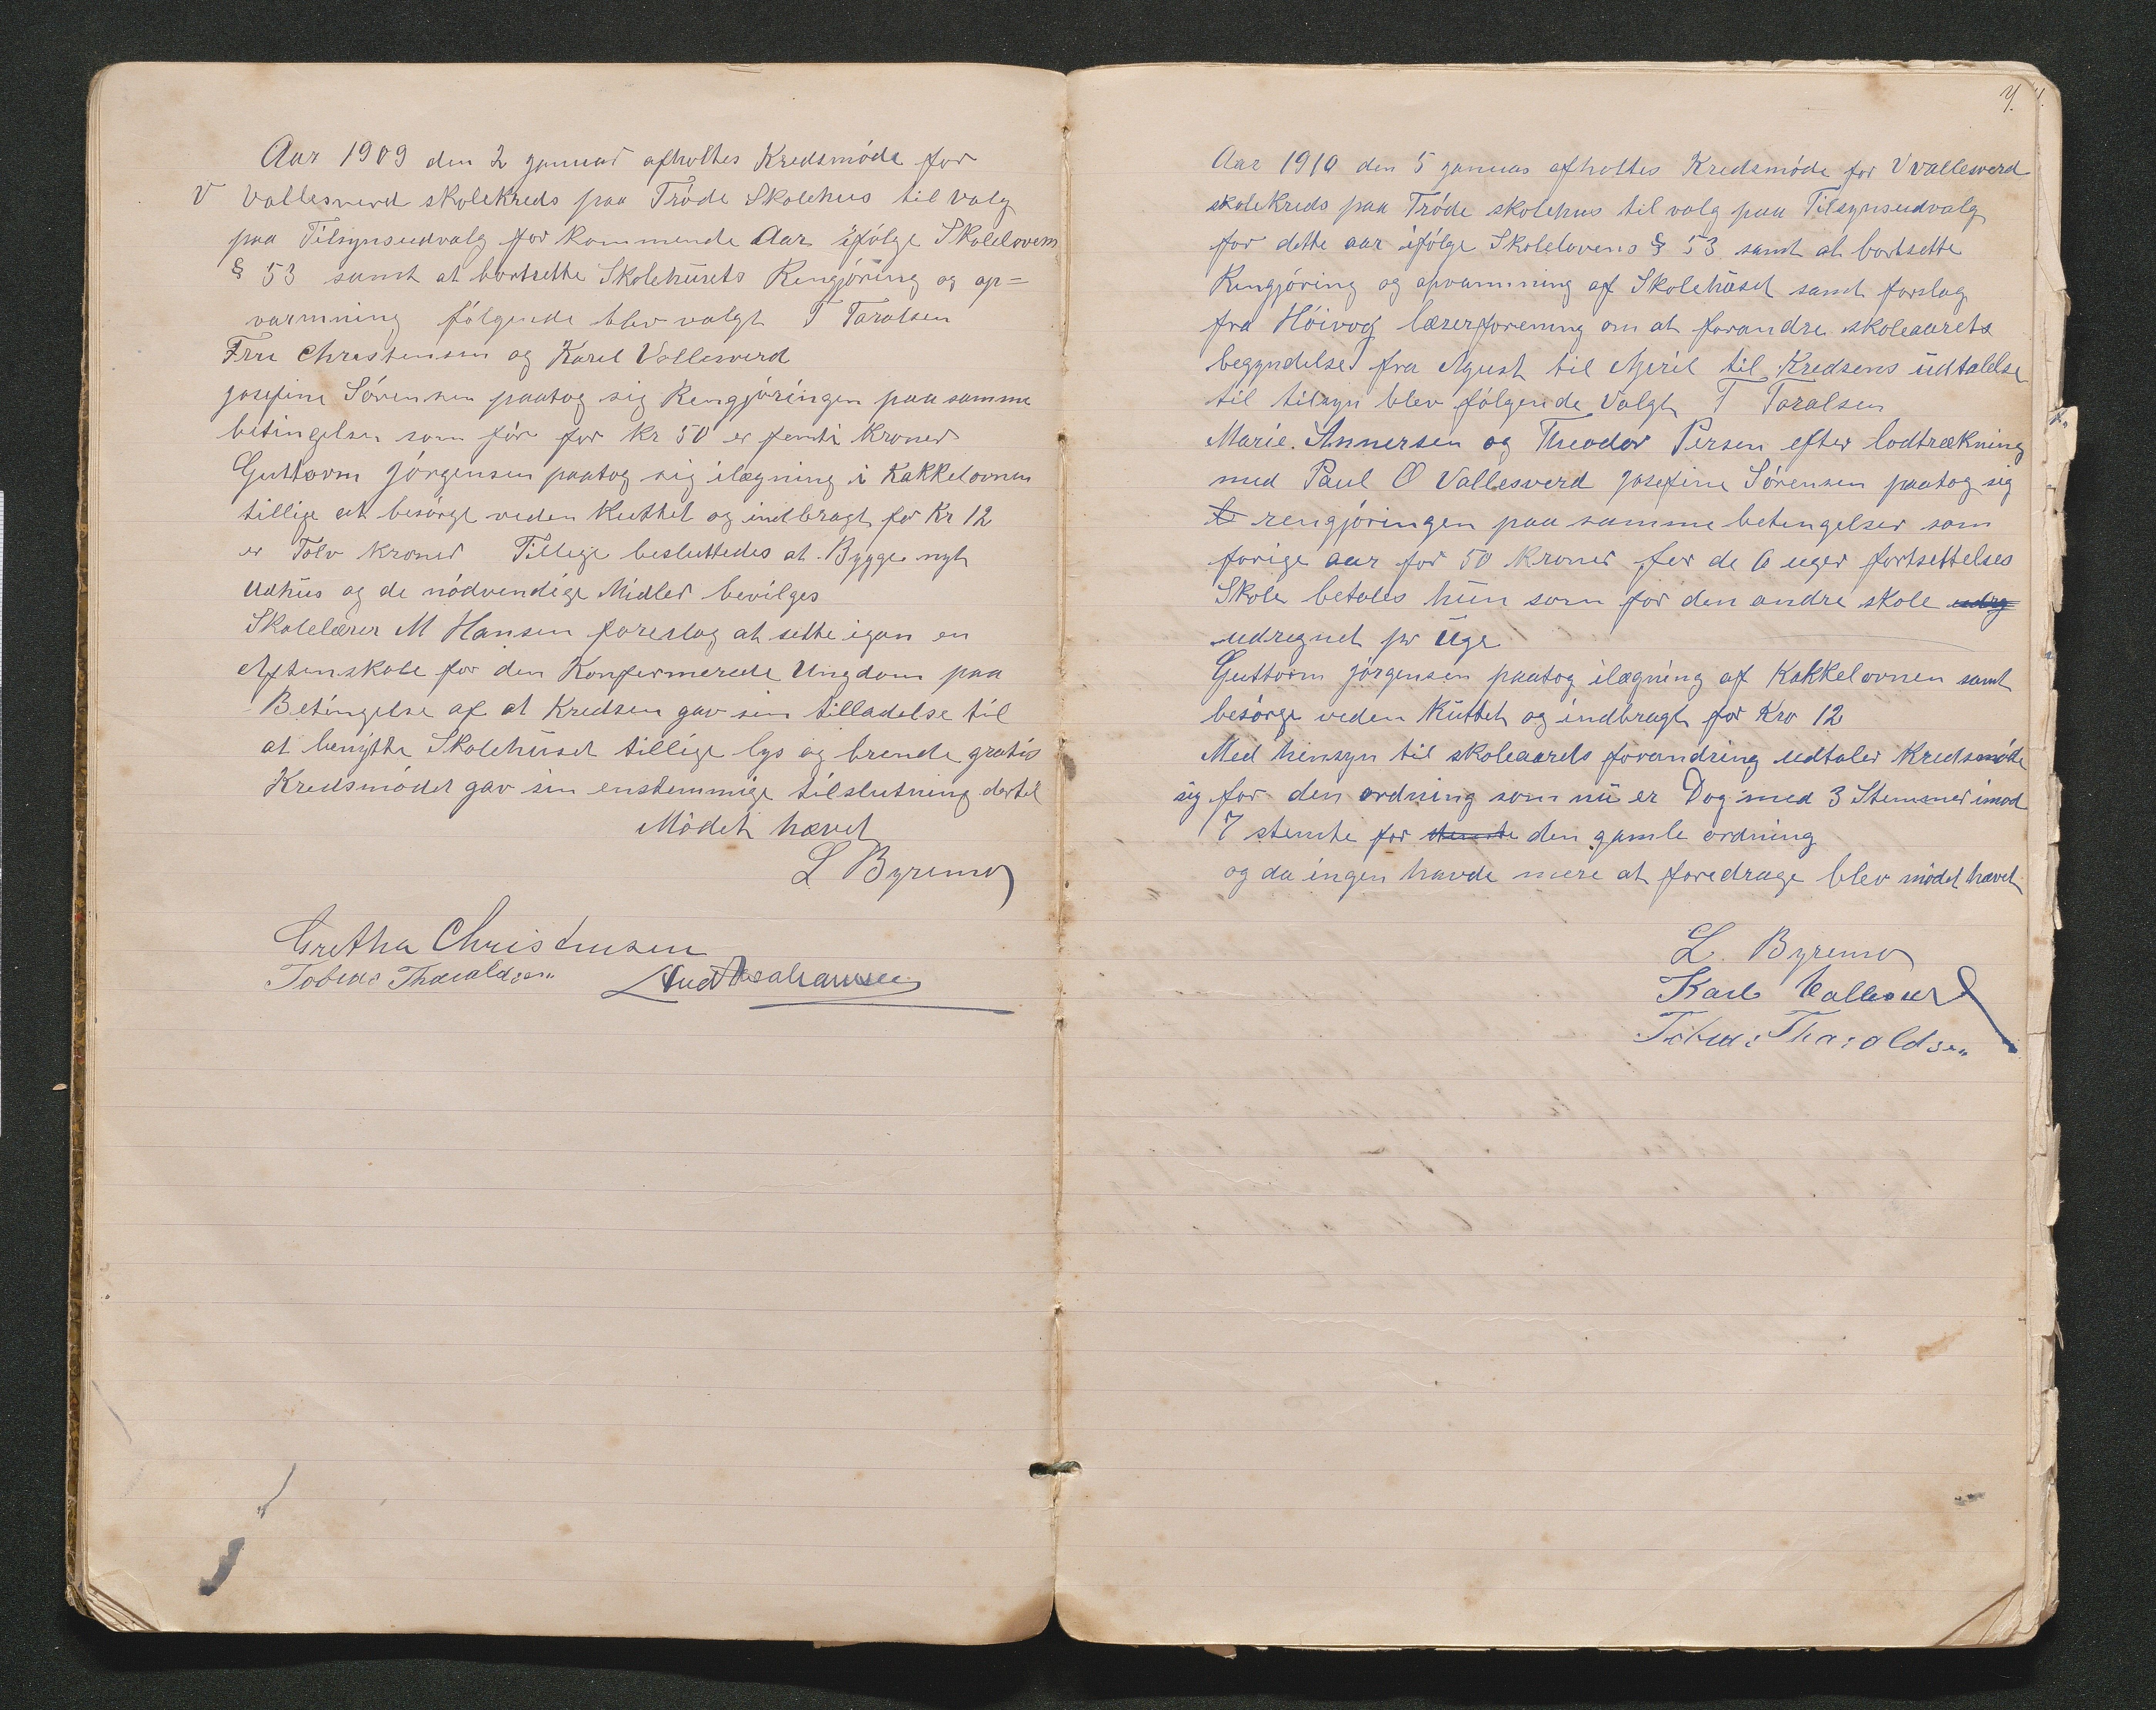 Aar 1909 den 2 januar afholtes Kredsmöde for
V Vallesverd skolekreds paa Tröde Skolehus til valg
paa Tilsynsudvalg for kommende Aar ifölge Skolelovens
§ 53 samt at bortsette Skolehusets Rengjöring og op=
varmning fölgende blev valgt T Taralsen
Fru Christensen og Karel Vallesverd
Josefine Sörensen paatog sig Rengjöringen paa samme
betingelser som för for kr 50 er femti kroner
Guttorm Jörgensen paatog sig ilægning i Kakkelovnen
tillige at besörge veden Kuttet og indbragt for Kr 12
er Tolv kroner Tillige besluttedes at Bygge nyt
Udhus og de nödvendige Midler bevilges
Skolelærer M Hansen foreslog at sette igan en
Aftenskole for den Konfermerede Ungdom paa
Betingelse af at Kredsen gav sin tilladelse til
at benytte Skolehuset tillige lys og brende gratis
Kredsmödet gav sin enstemmige tilslutning dertil
Mödet hævet
L Byremo
Gretha Christensen
Tobias Tharaldsen
4.
Aar 1910 den 5 januar afholtes Kredsmöde for V Vallesverd
skolekreds paa Tröde skolehus til valg paa Tilsynsudvalg
for dette aar ifölge Skolelovens § 53 samt at bortsette
Rengjöring og opvarmning af Skolehuset samt forslag
fra Höivog lærerforening om at forandre skoleaarets
begyndelse fra Agust til April til Kredsens udtalelse
til tilsyn blev fölgende Valgt T Taralsen
Marie Annersen og Theodor Persen efter lodtrækning
med Paul O Vallesverd Josefine Sörensen paatog sig
rengjöringen paa samme betengelser som
forige aar for 50 kroner for de 6 uger fortsettelses
Skole betales hun som for den andre skole udrg
udregnet pr Uge
Guttorm Jörgensen paatog ilægning af Kakkelovnen samt
besörge veden Kuttet og indbragt for Kro 12
Med hensyn til skoleaarets forandring udtaler Kredsmöde
sig for den ordning som nu er Dog med 3 Stemmer imod
7 stemte for stemte den gamle ordning
og da ingen havde mere at foredrage blev mödet hævet
L. Byremo
Karl Vallesverd
Tobias Tharaldsen